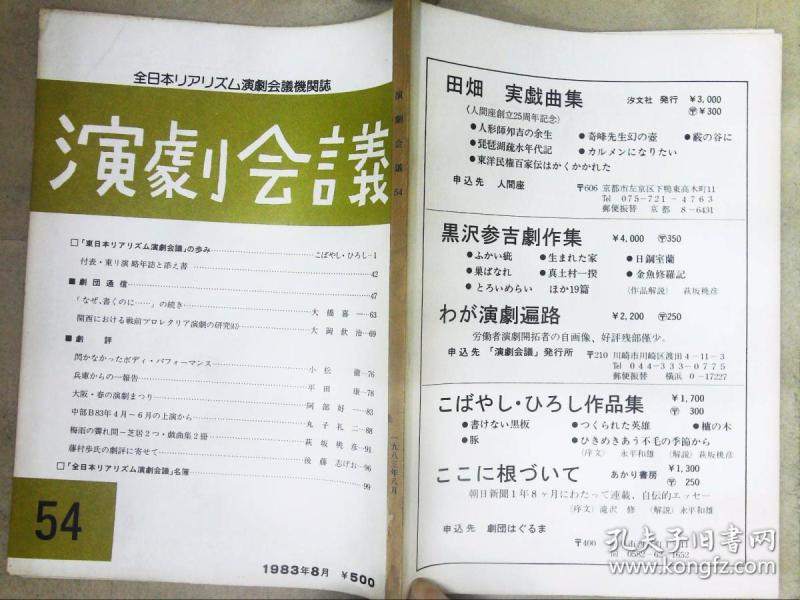 全日本リアリズム演劇会議機関誌
演劇会議
□「東日本リアリズム演劇会議」の歩み……こばやし・ひろし…1
付表・東リ演 略年誌と添え書……42
■劇団通信……47
「なぜ、書くのに……」の続き……大橋喜一…63
関西における戦前プロレタリア演劇の研究(41)……大岡欽治…69
■劇評
閃かなかったボディ・パフォーマンス……小松徹…76
兵庫からの一報告……平田康…78
大阪・春の演劇まつり……阿部好一…83
中部B83年4月～6月の上演から……丸子礼二…88
梅雨の霽れ間－芝居2つ・戯曲集2冊……萩坂桃彦…91
藤村歩氏の劇評に寄せて……後藤志げお…96
□「全日本リアリズム演劇会議」名簿……99
54
1983年8月 ￥500
演劇会議 54
一九八三年八月
田畑 実戯曲集 汐文社 発行 ￥3,000
〒￥300
〈人間座創立25周年記念〉
●人形師卯吉の余生 ●奇峰先生幻の壺 ●霰の谷に
●琵琶湖疏水年代記 ●カルメンになりたい
●東洋民権百家伝はかくかかれた
申込先 人間座 〒606 京都市左京区下鴨東高木町11
Tel 075-721-4763
郵便振替 京都 8-6431
黒沢参吉劇作集 ￥4,000 〒350
●ふかい疵 ●生まれた家 ●日鋼室蘭
●巣ばなれ ●真土村一揆 ●金魚修羅記
●とろいめらい ほか19篇 〈作品解説〉 萩坂桃彦
わが演劇遍路 ￥2,200 〒250
労働者演劇開拓者の自画像、好評残部僅少。
申込先 「演劇会議」発行所 〒210 川崎市川崎区渡田4-11-3
Tel 044-333-0775
郵便振替 横浜 0-17227
こばやし・ひろし作品集 ￥1,700
〒 300
●書けない黒板 ●つくられた英雄 ●櫨の木
●豚 ●ひきめきあう不毛の季節から
〈序文〉 永平和雄 〈解説〉 萩坂桃彦
ここに根づいて あかり書房 ￥1,300
〒 250
朝日新聞1年8ヶ月にわたって連載、自伝的エッセー
〈序文〉 滝沢 修 〈解説〉 永平和雄
申込先 劇団はぐるま
〒400
Tel 0582-62-1652
孔夫子旧书网
kongfz.com